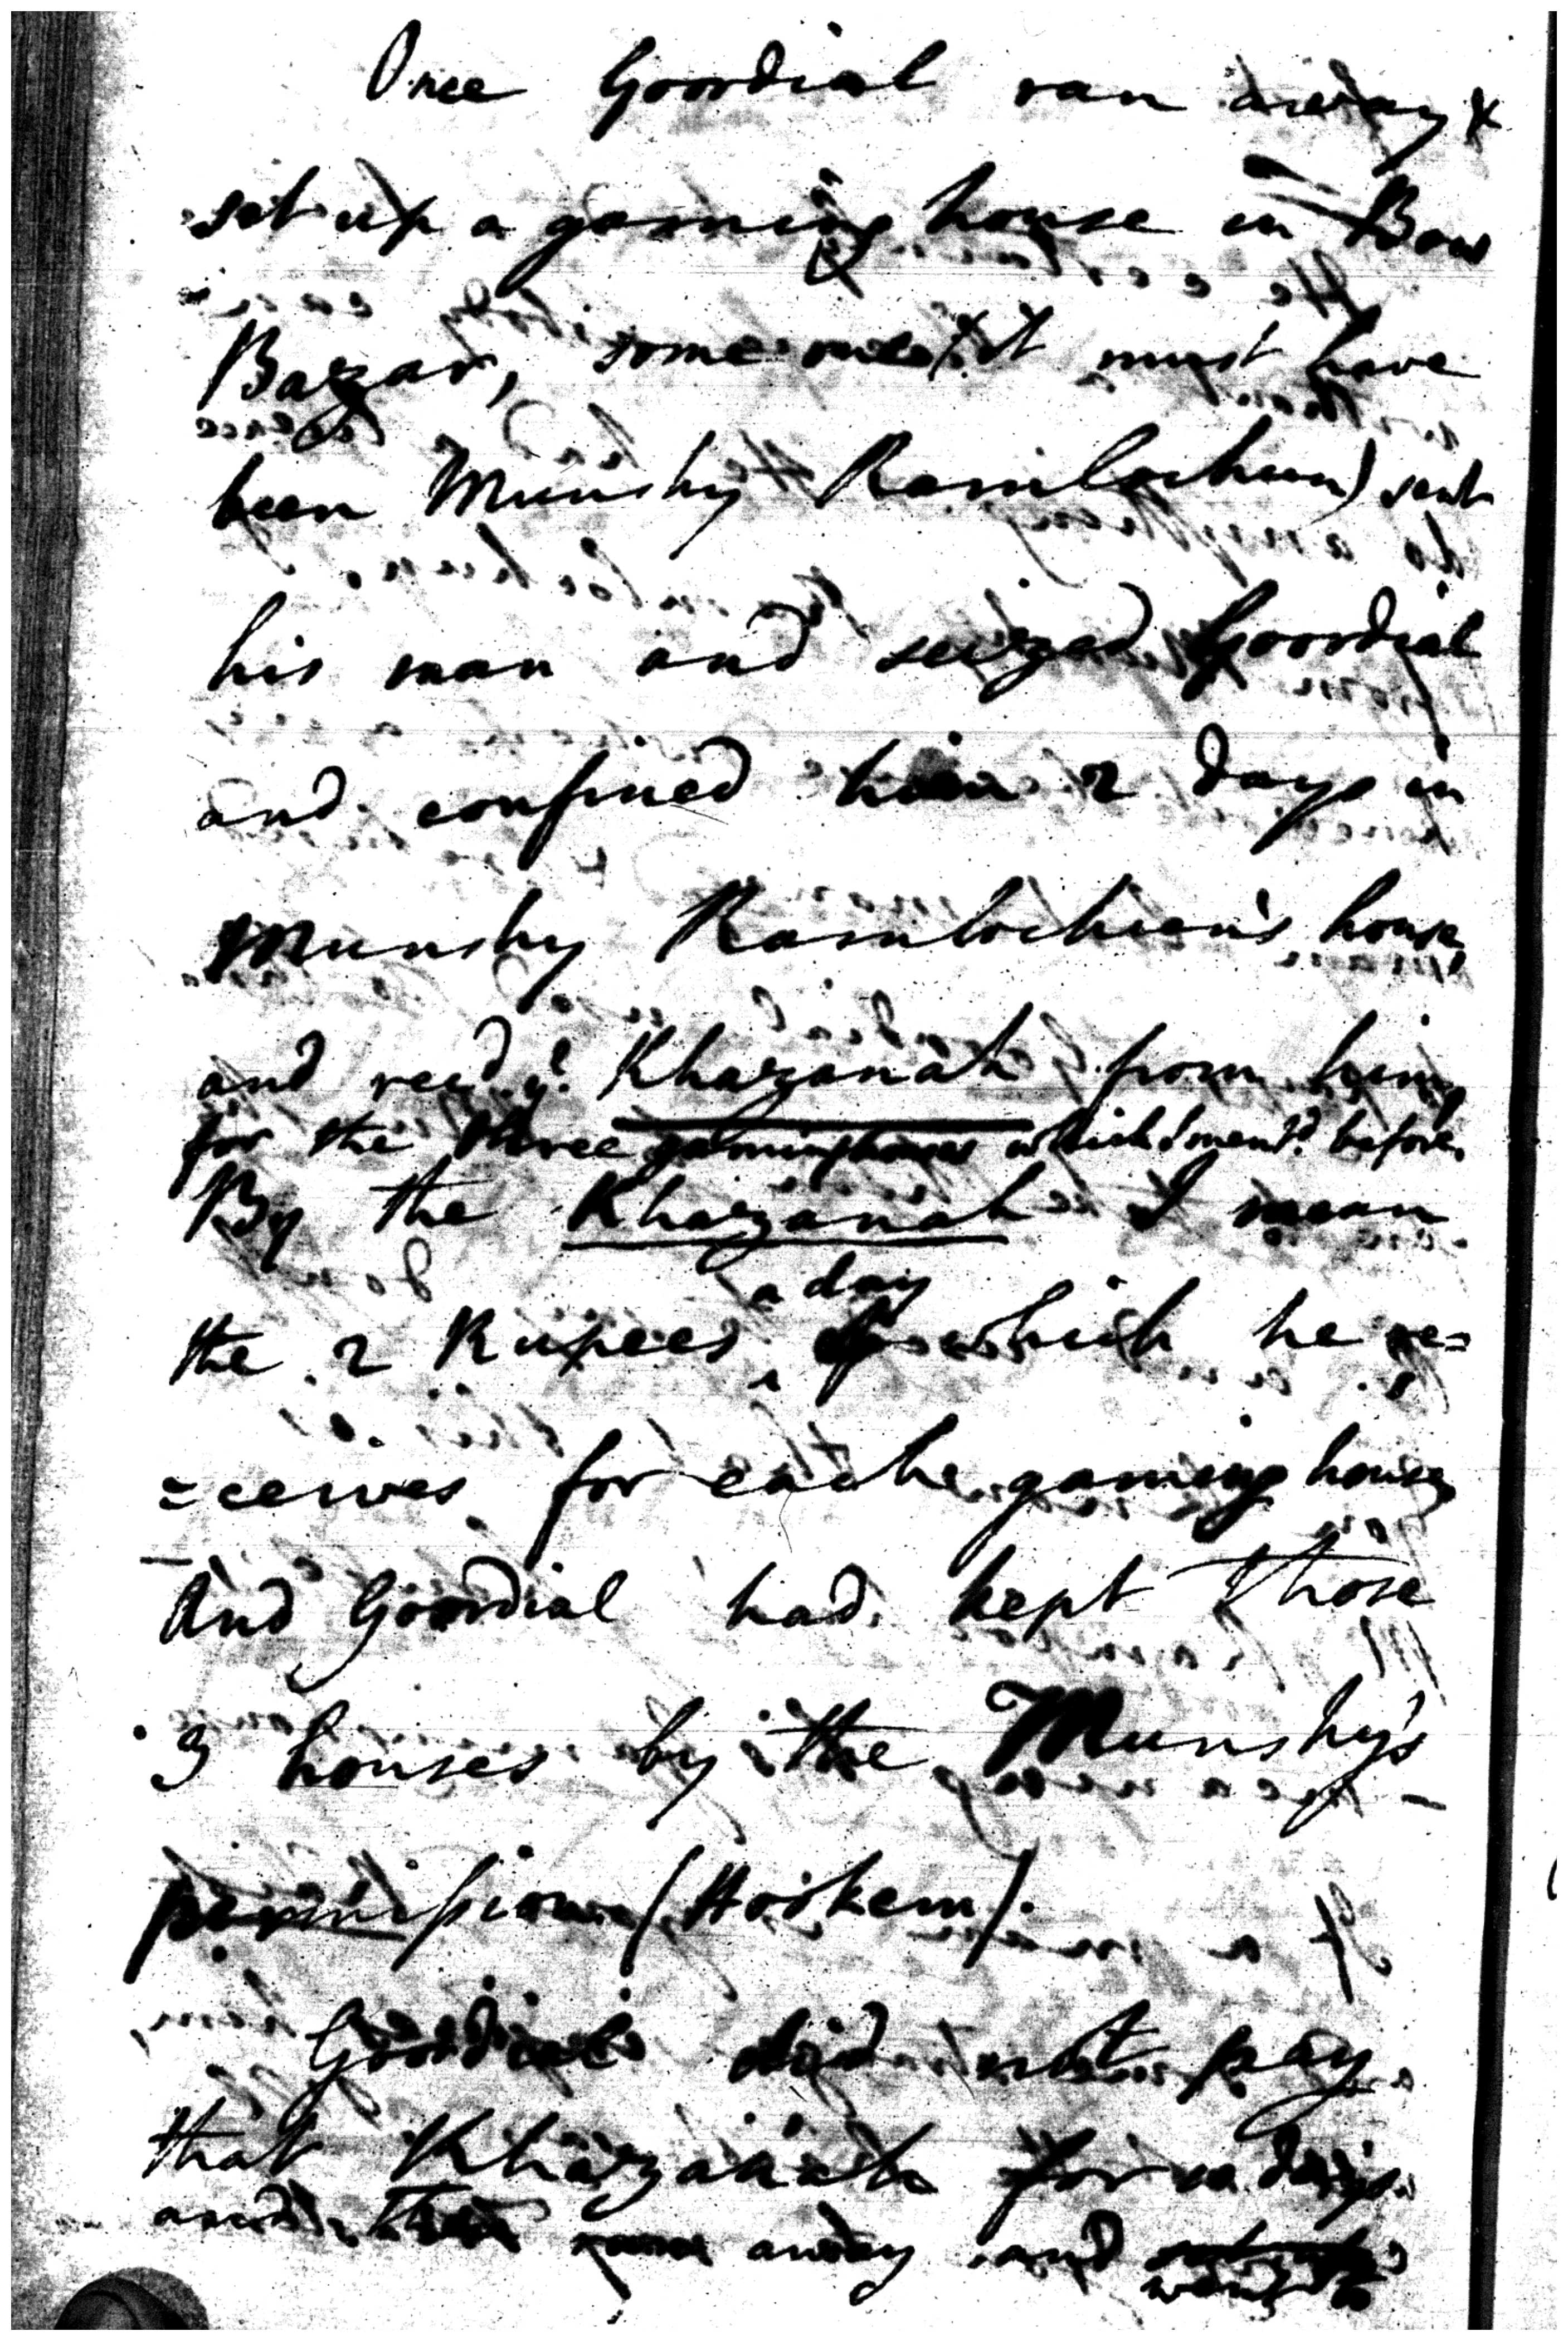 Once Goordial ran away &
set up a gaming house in Bow
Bazar, some one (it must have
been Munshy Ramlochun) sent
his man and seized Goordial
and confined him 2 days in
Munshy Ramlochun's house
and recd. ye. Khazanah from him,
for the three gaming houses which I mentd. before.
By the Khazanah I mean
a day
the 2 Rupees, which he re=
=ceives for each gaming house
And Goordial had kept those
3 houses by the Munshy's
permission (Hookem).
Goordial did not pay
that Khazanah for days
and then away and went to